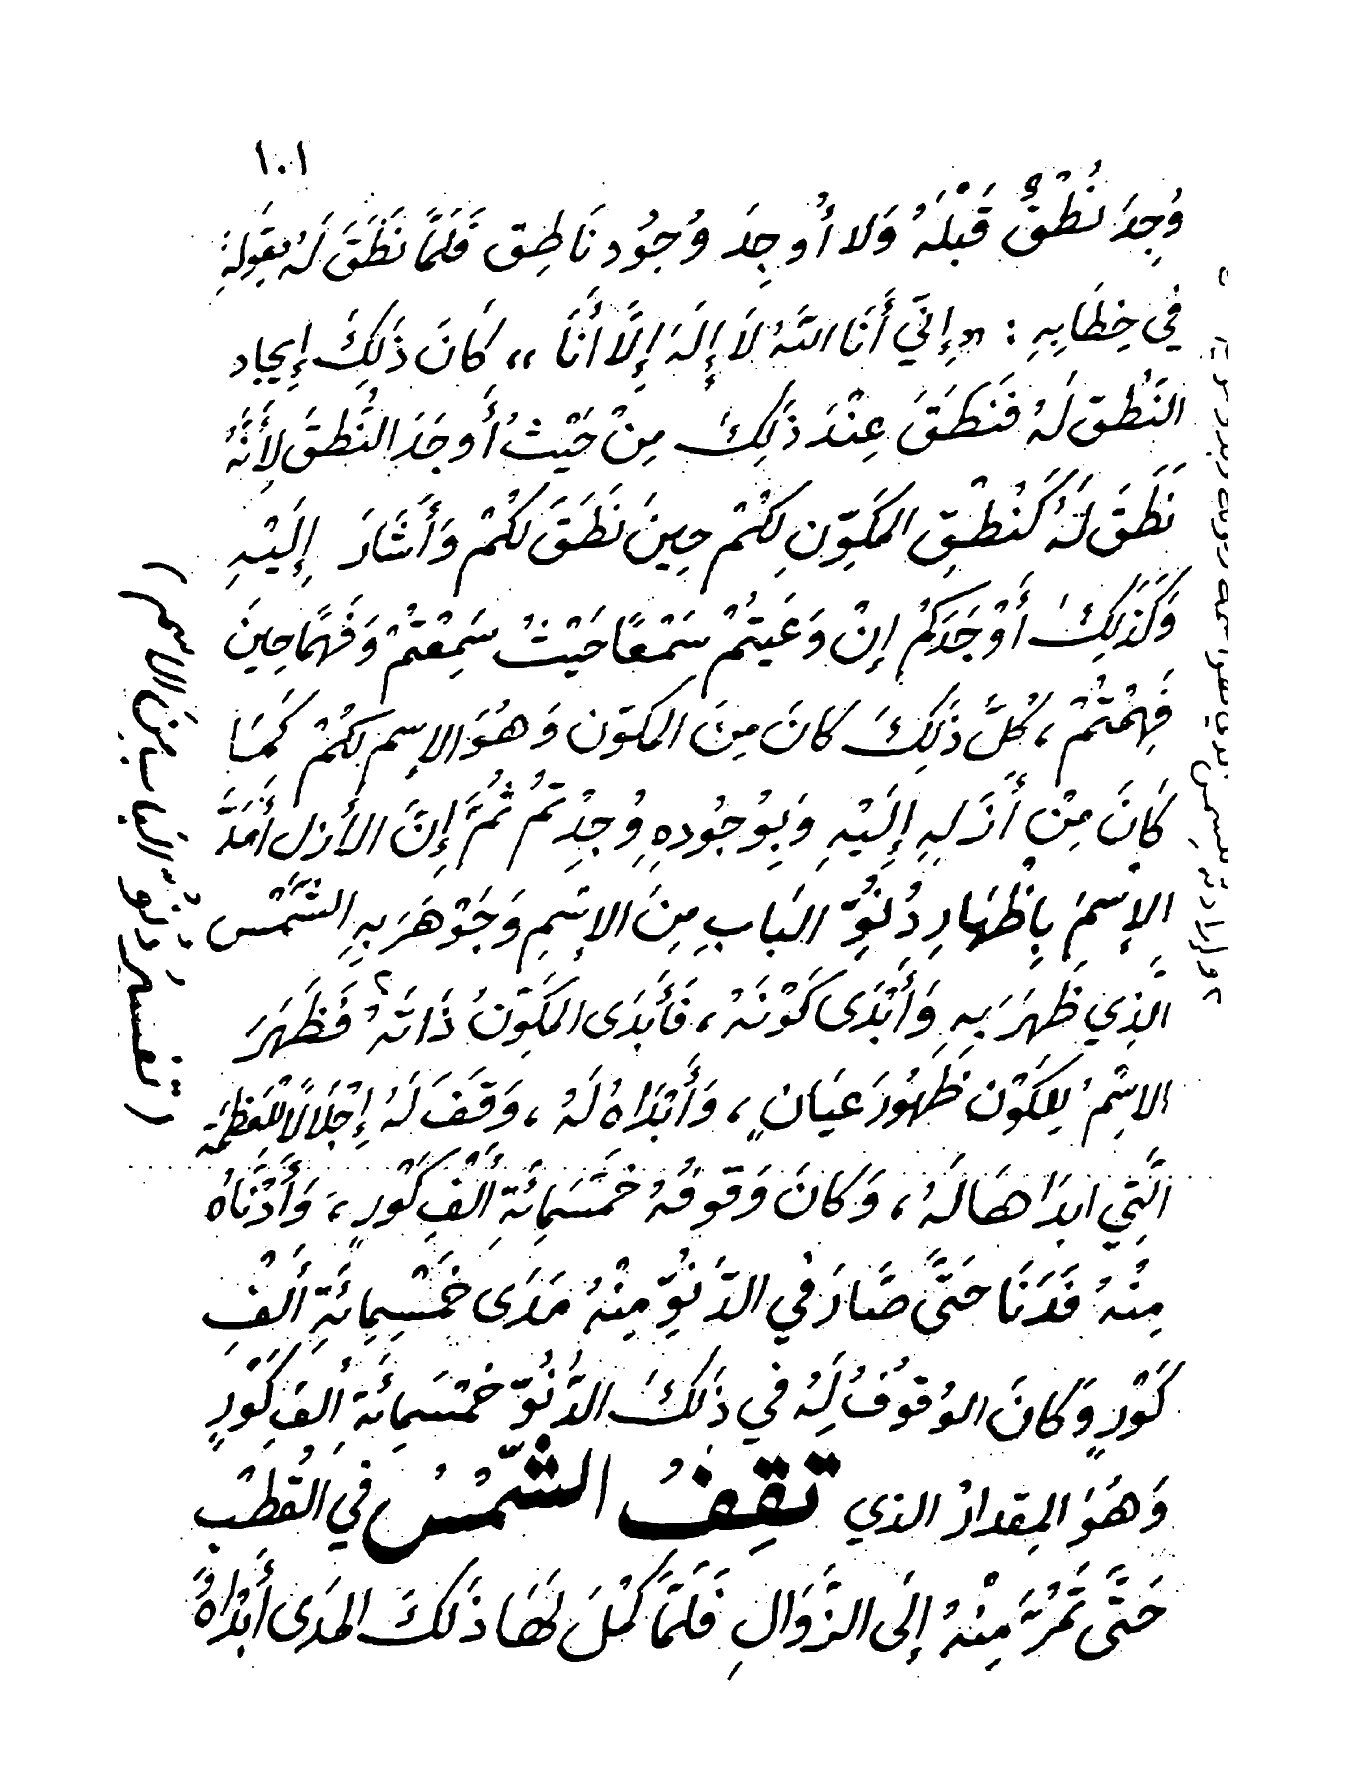 ١٠١
وُجِدَ نُطْقٌ قَبْلَهُ وَلا أُوجِدَ وُجُود نَاطِق فَلَمَّا نَطَقَ لَهُ بِقَولِهِ
في خِطَابِهِ : «إِنِّي أَنَا اللَّهُ لَا إِلَهَ إِلَّا أَنَا» كَانَ ذَلِكَ إِيجاد
النُطْقِ لَهُ فَنَطَقَ عِنْدَ ذَلِكَ مِنْ حَيْثُ أَوجَدَ النُّطْقَ لِأَنَّهُ
نَطَقَ لَهُ كَنُطْقِ المَكَوِّنِ لَكُمْ حِينَ نَطَقَ لَكُمْ وَأَشَارَ إِلَيْهِ
وَكَذَلِكَ أَوْجَدَكُمْ إِنْ وَعَيتُمْ سَمْعًا حَيْثُ سَمِعْتُمْ وَفَهْمًا حِينَ
فَهِمْتُمْ ، كُلُّ ذَلِكَ كَانَ مِنَ المكوّن وَهُوَ الاِسم لَكُمْ كَمَا
كَانَ مِنْ أَزَلِهِ إِلَيْهِ وَبِوُجُودِهِ وُجِدْتُمْ ثُمَّ إِنَّ الأَزل أَمَدَّ
الاِسْمَ بِإِظْهَارِ دُنُوِّ البَابِ مِنَ الاِسْمِ وَجَوْهَرَ بِهِ الشَّمْس
الَّذِي ظَهَرَ بِهِ وَأَبْدَى كَوْنَهُ ، فَأَبْدَى المَكَوِّنُ ذَاتَهُ فَظَهَرَ
الاِسْمُ لِلكَوْنِ ظُهُورَ عِيَانٍ ، وَأَبْدَاهُ لَهُ ، وَقَفَ لَهُ إِجْلَالًا لِلْعَظَمَةِ
الَّتِي ابدَاهَا لَهُ ، وَكَانَ وَقوفُهُ خَمْسَمِائَةِ أَلْفِ كَوْرٍ ، وَأَدْنَاهُ
مِنْهُ فَدَنَا حَتَّى صَارَ في الدّنُوِّ مِنْهُ مَدَى خَمْسِمِائَةِ أَلْفِ
كَوْرٍ وَكَانَ الوُقوُفُ لَهُ في ذَلِكَ الدُّنُوّ خمْسَمِائَة أَلفِ كَوْرٍ
وَهُوَ المِقدارُ الذي تَقِفُ الشَّمْسُ في القُطْبِ
حَتَّى تَمُرَّ مِنْهُ إِلَى الزَّوَالِ فَلَمَّا كَمُلَ لَهَا ذَلِكَ المَدَى أَبْدَاهُ
( تفسير دُنُوّ البَاب مِنَ الاسم )